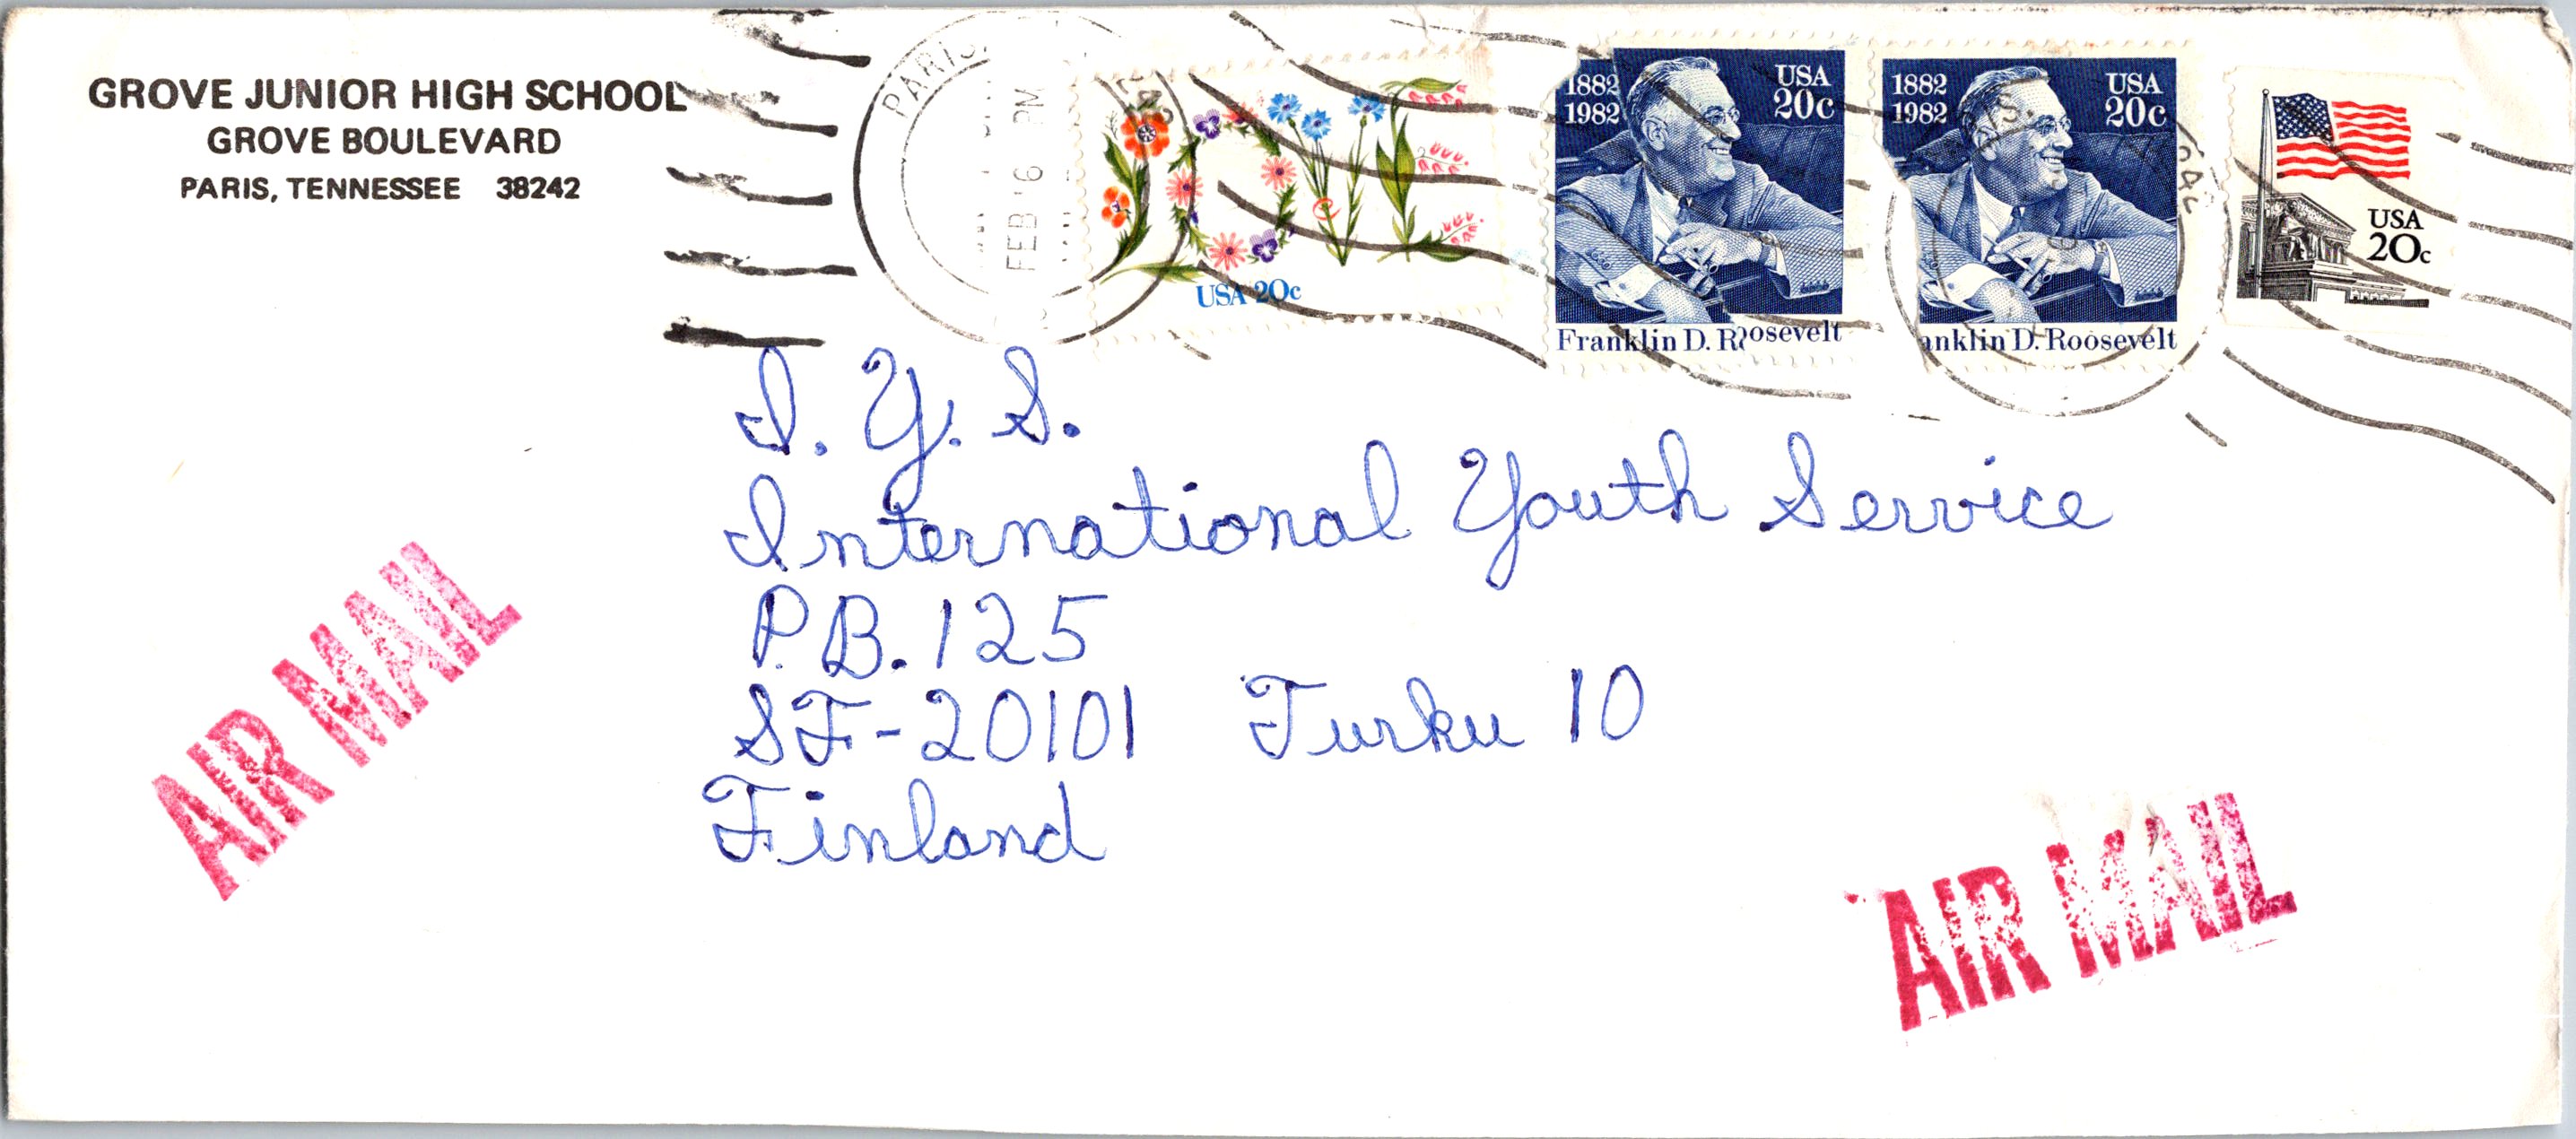 GROVE JUNIOR HIGH SCHOOL
GROVE BOULEVARD
PARIS, TENNESSEE 38242
PARIS,
FEB 6 PM
USA 20c
1882
1982
USA
20c
Franklin D. Roosevelt
1882
1982
USA
20c
anklin D. Roosevelt
USA
20c
I. Y. S.
International Youth Service
P.B. 125
SF-20101 Turku 10
Finland
AIR MAIL
AIR MAIL